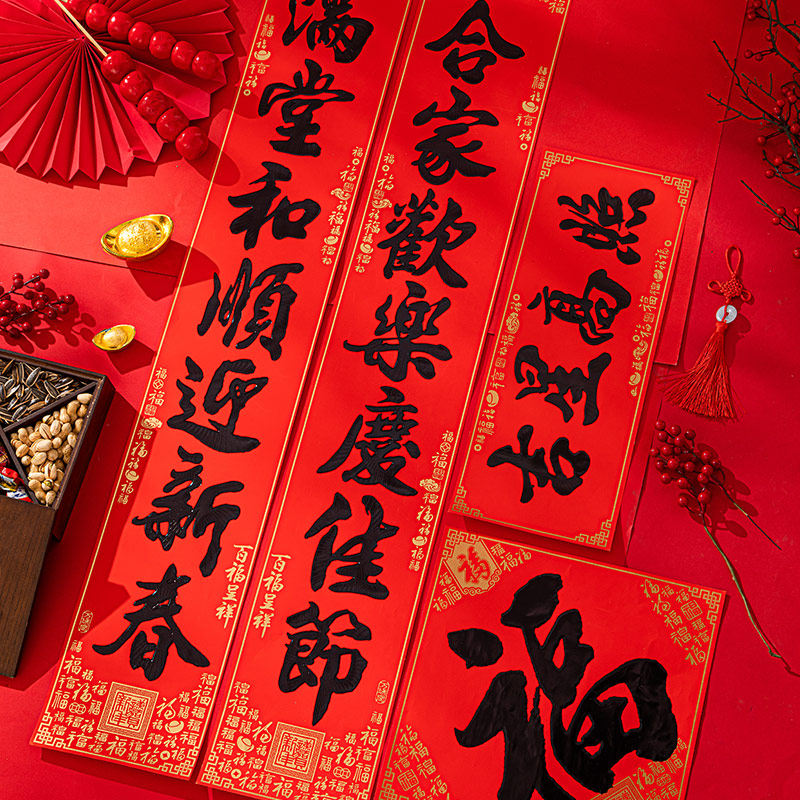 合家歡樂慶佳節
滿堂和順迎新春
吉星高照
福
百福呈祥
百福呈祥